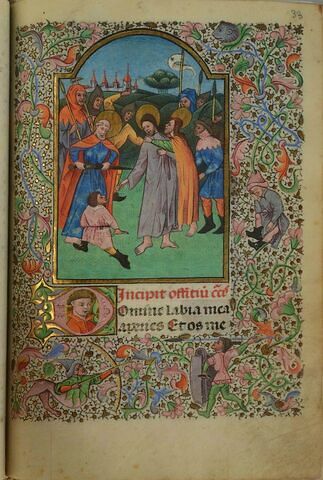 33
Incipit offitiū cc̄s
Domine labia mea
aperies Et os me